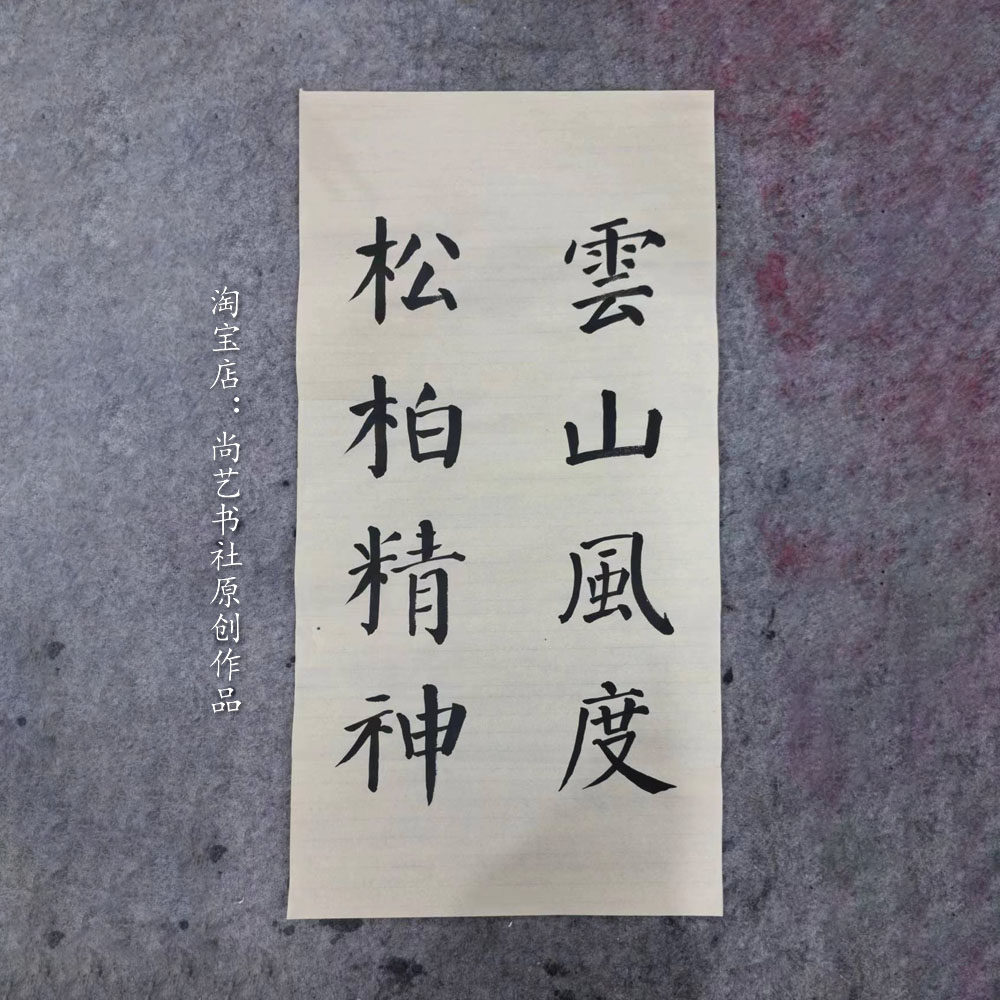 雲山風度
松柏精神
淘宝店：尚艺书社原创作品